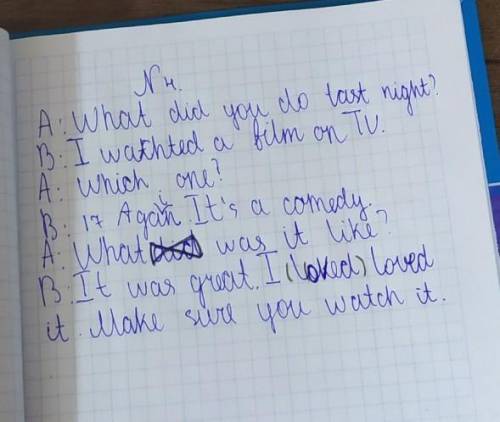 N 4.
A: What did you do last night?
B: I wathted a film on TV.
A: Which one?
B: 17 Again. It's a comedy.
A: What was it like?
B: It was great. I (loked) loved
it. Make sure you watch it.